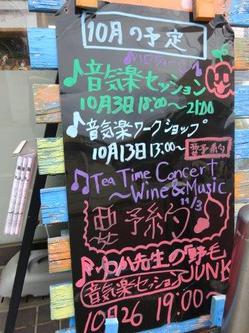 10月の予定
音気楽セッション
10月3日18:00~21:00
音気楽ワークショップ
10月13日13:00~ 要予約
Tea Time Concert
~Wine & Music
11/3
要予約
先生の「野毛
JUNK
音気楽セッション
10.26 19:00~